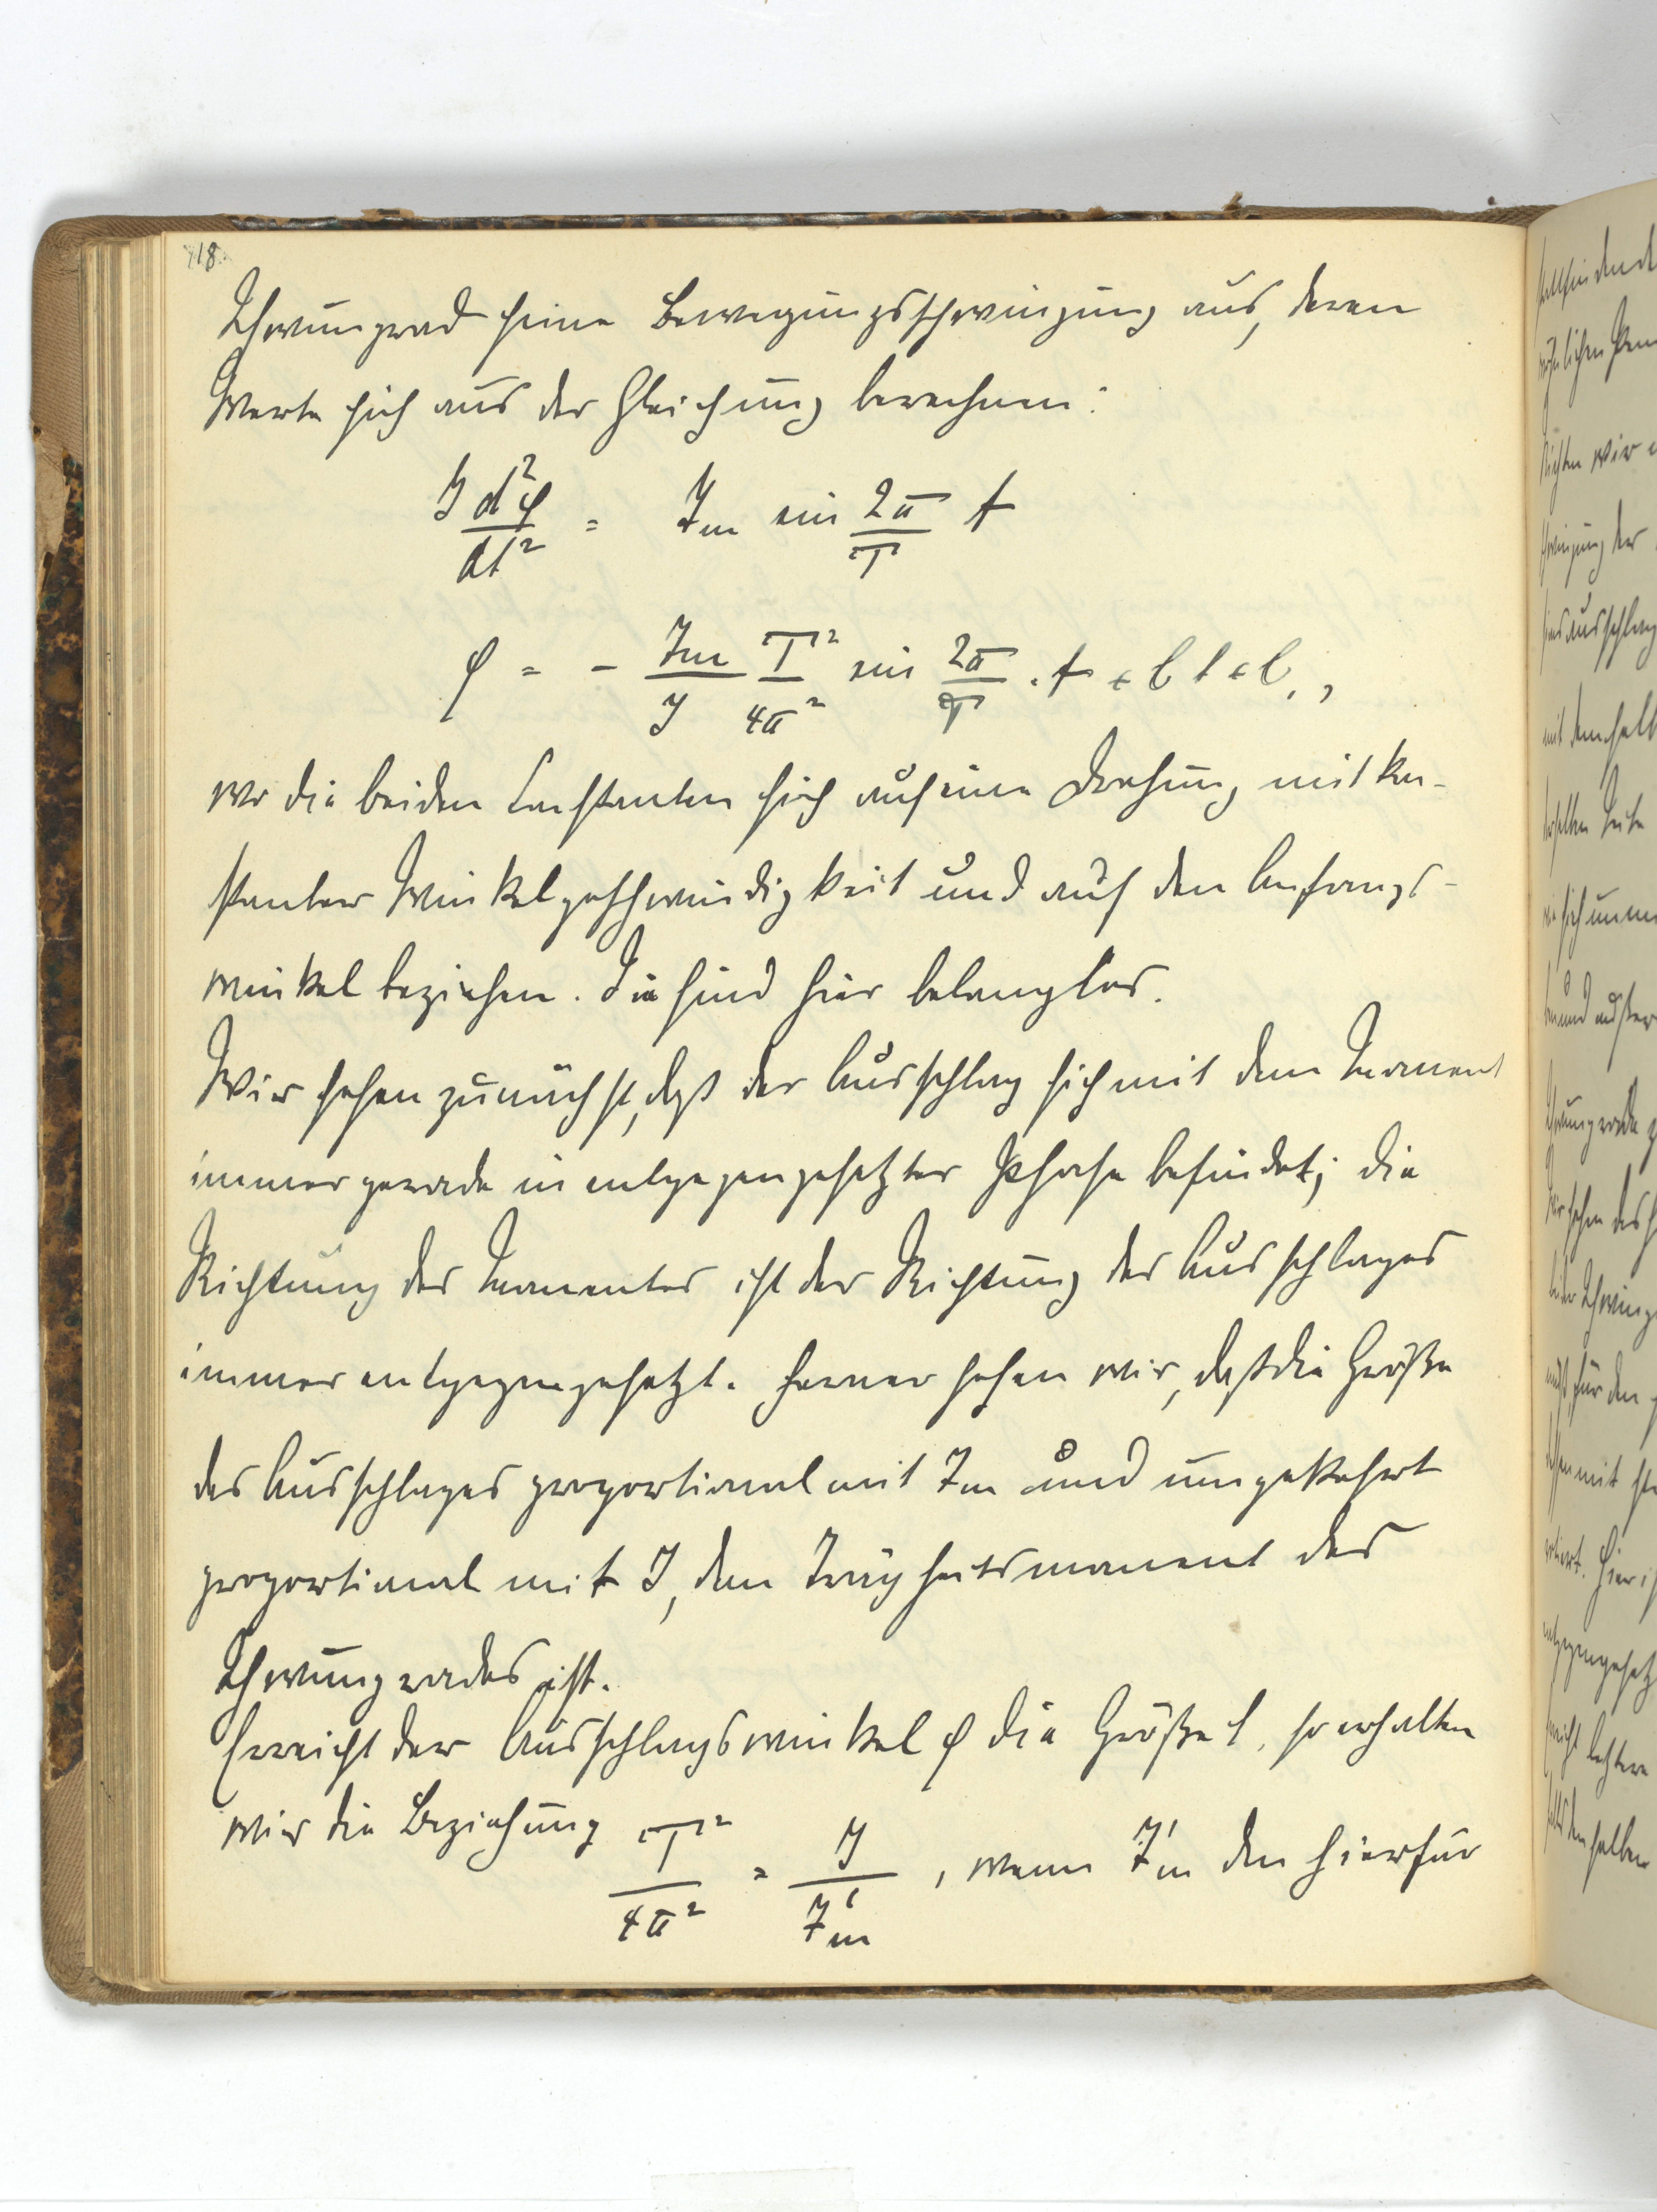 18.
Schwungrad seine Bewegungsschwingung aus, deren
Werte sich aus der Gleichung berechnen:
J d²φ/dt² = Jm sin 2π/T t
φ = - Jm/J T²/4π² sin 2π/T · t + C t + C₁,
wo die beiden Constanten sich auf eine Drehung mit kon-
stanter Winkelgeschwindigkeit und auf den Anfangs-
winkel beziehen. Sie sind hier belanglos.
Wir sehen zunächst, daß der Ausschlag sich mit dem Moment
immer gerade in entgegengesetzter Phase befindet; die
Richtung des Momentes ist der Richtung des Ausschlages
immer entgegengesetzt. Ferner sehen wir, daß die Größe
des Ausschlages proportional mit Jm und umgekehrt
proportional mit J, dem Trägheitsmoment des
Schwungrades ist.
Erreicht der Ausschlagswinkel φ die Größe 1, so erhalten
wir die Beziehung T²/4π² = J/J'm, wenn J'm den hierfür